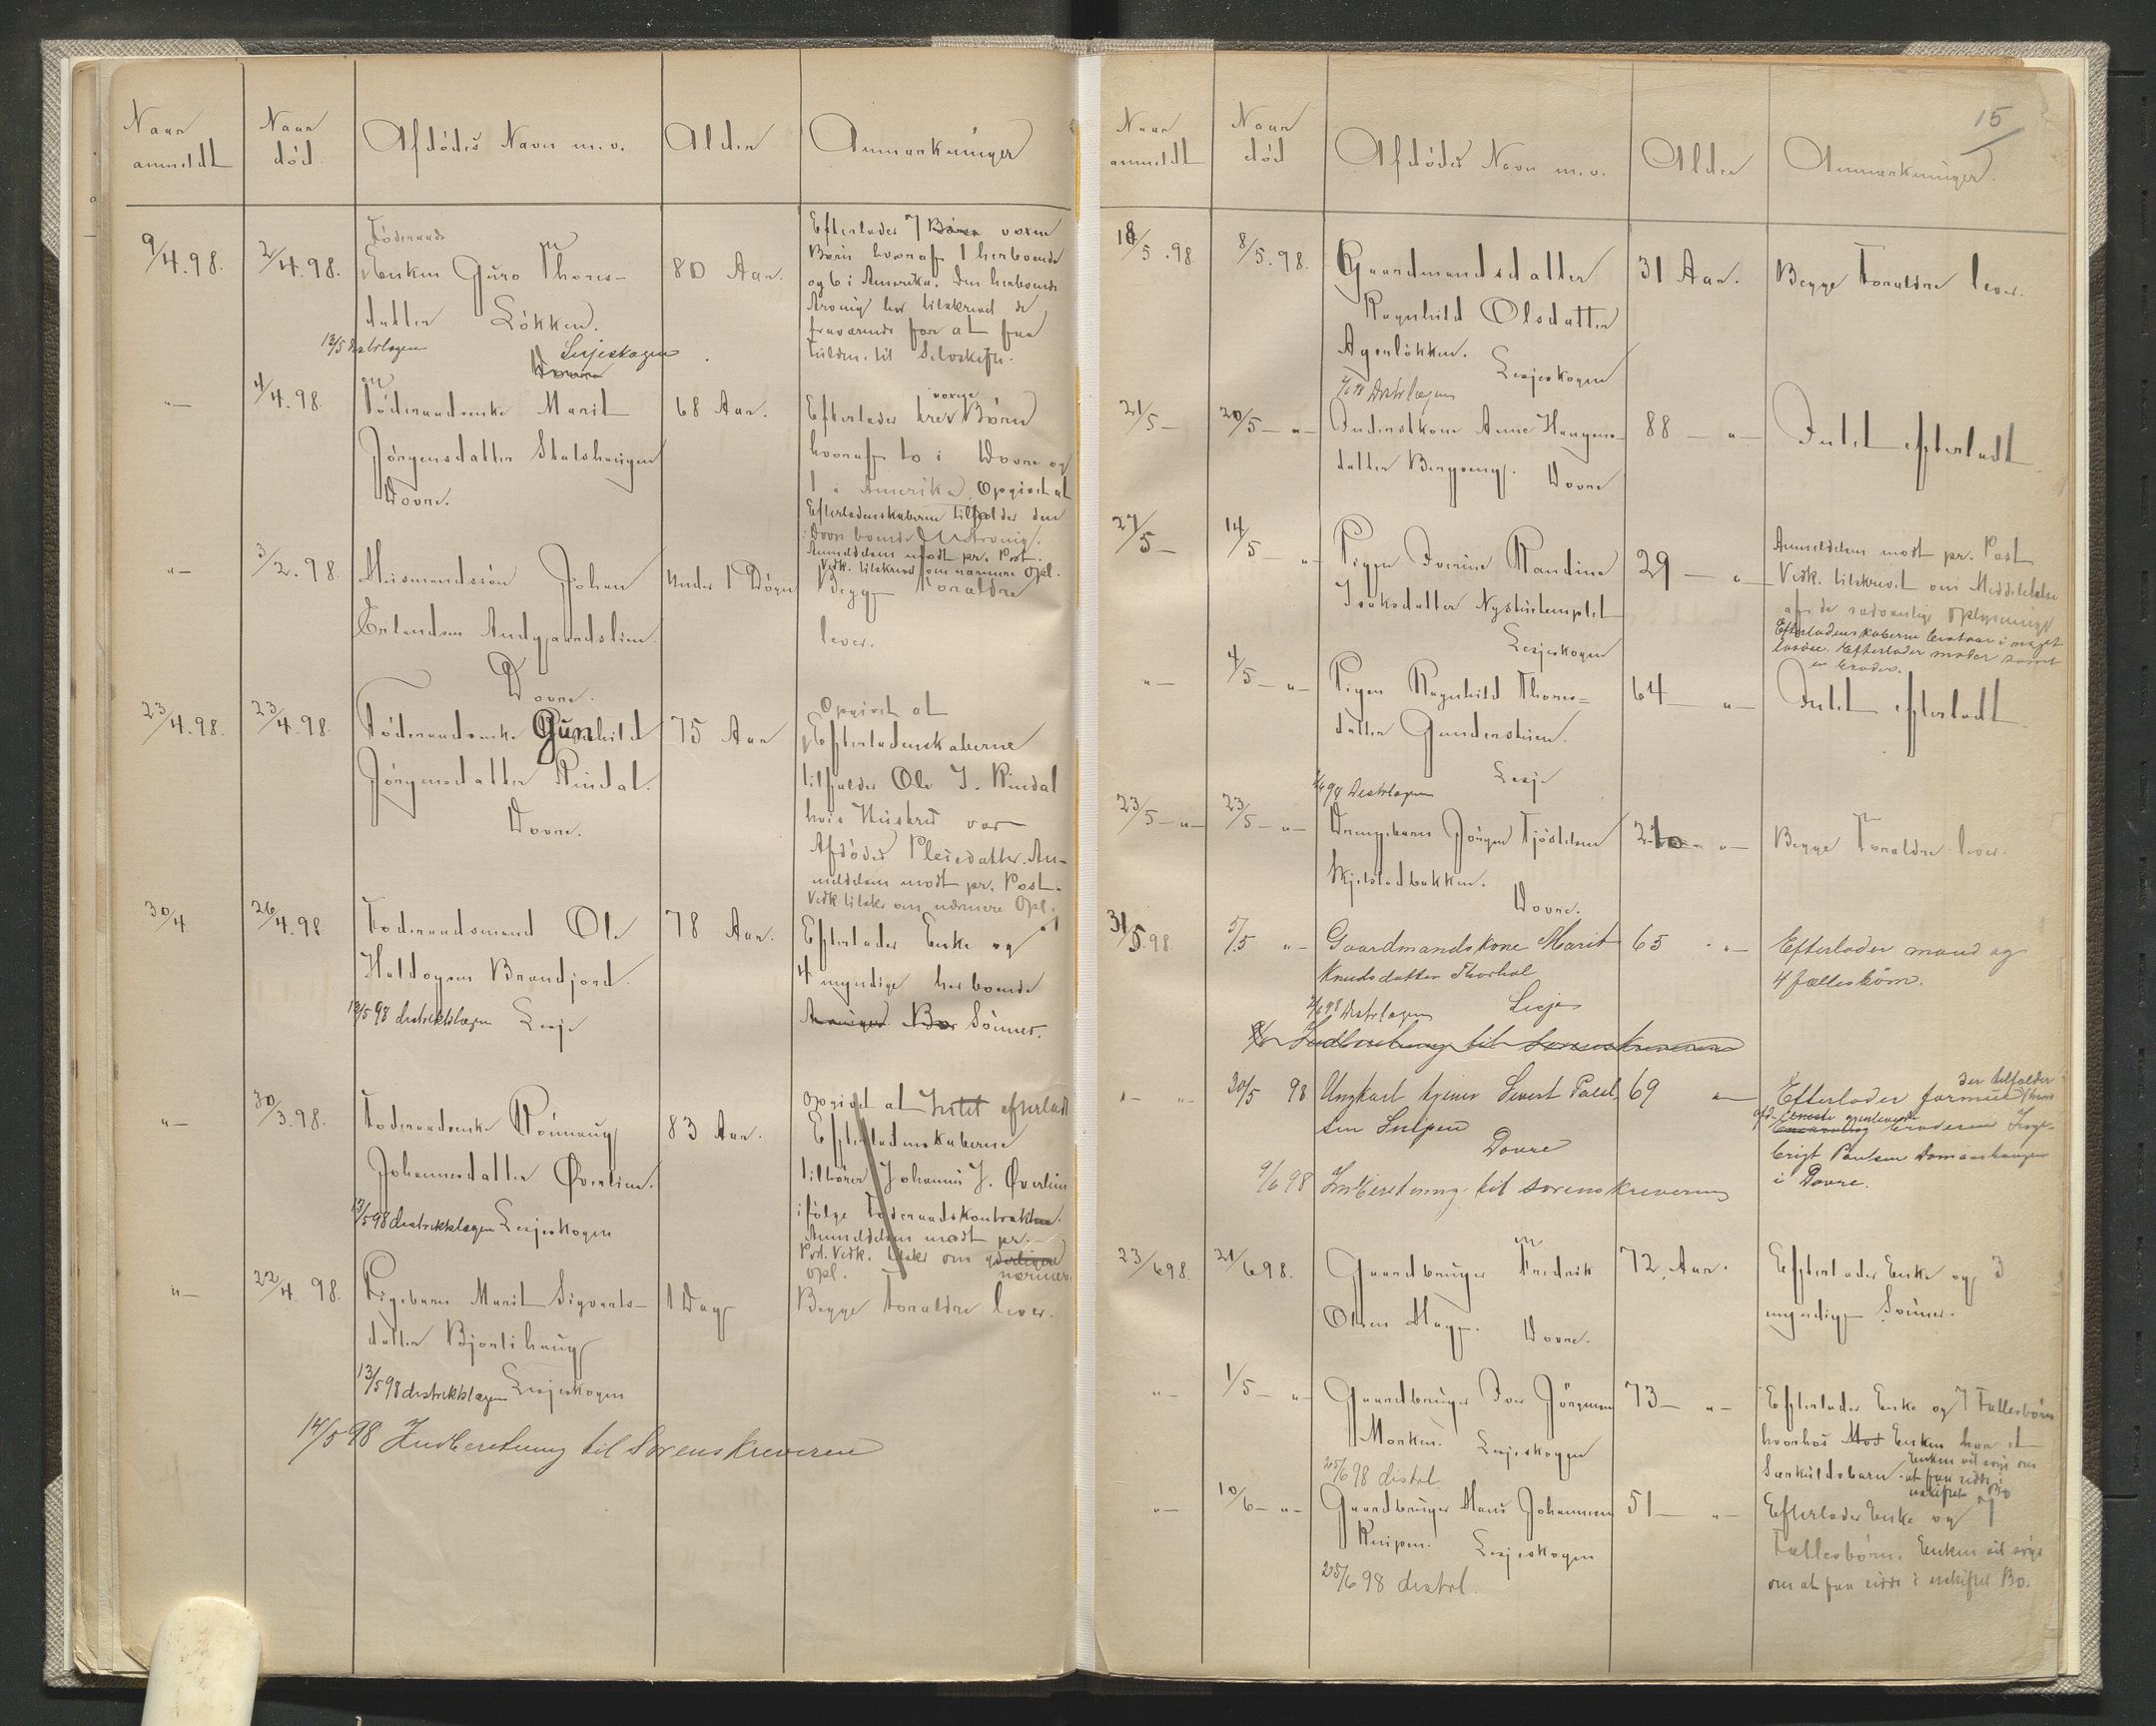 Naar anmeldt
Naar død
Afdødes Navn m.v.
Alder
Anmærkninger
9/4.98.
2/4.98.
Föderaads
Enken Guro Thores-
datter Lökken.
13/5 distrlægen Lesjeskogen
Dovre
80 Aar.
Efterlader 7 Börn voxne
Börn hvoraf 1 herboende
og 6 i Amerika. Den herboende
Arving har tilskrevet de
fraværende for at faa
Fuldm. til Selvskifte.
"—
4/4.98.
Föderaadsenke Marit
Jörgensdatter Stalshaugen
Dovre.
68 Aar.
Efterlader trev voxne Börn
hvoraf to i Dovre og
1 i Amerika. Opgivet at
Efterladenskaberne tilfalder den
i Dovre boende
Anmeldelsen modt pr. Post.
Vedk. tilskrevet om nærmere Opl.
"—
3/2.98.
Huismandssön Johan
Erlandsen Andgaardslien.
Dovre.
Under 1 Dögn
Begge Foraldre
lever.
23/4.98.
23/4.98.
Föderaadsenke Gunhild
Jörgensdatter Rindal.
Dovre.
75 Aar
Opgivet at
Efterladenskaberne
tilfalder Ole J. Rindal
hvis Hustru var
Afdödes Pleiedatter. An-
meldelsen modt pr. Post.
Vedk tilskr om nærmere Opl.
30/4
26/4.98.
Föderaadsmand Ole
Haldogsen Brandjord.
13/5 98 distriktslægen Lesje
78 Aar.
Efterlader Enke og
4 myndige herboende
Arvinger Bo Sönner.
"—
30/3.98.
Föderaadsenke Rönnaug
Johannesdatter Øverlien.
13/5 98 distriktslægen Lesjeskogen
83 Aar.
Opgivet at Intet efterladt
Efterladenskaberne
tilhører Johannes J. Øverlien
ifölge Föderaadskontrakten.
Anmeldelsen modt pr.
Post. Vedk. tilskr om yderligere
Opl. nærmere
"—
22/4 98.
Pigebarn Marit Sigvarts-
datter Bjorlihaug
13/5 98 distriktslægen Lesjeskogen
1 Dag
Begge Foraldre lever.
14/5 98 Indberetning til Sorenskriveren
15
Naar anmeldt
Naar død
Afdødes Navn m.v.
Alder
Anmærkninger.
18/5.98.
8/5.98.
Gaardmandsdatter
Ragnhild Olsdatter
Agerlökken. Lesjeskogen
2/6 98 Distrlægen
31 Aar.
Begge Foraldre lever.
21/5 —
20/5 — "—
Inderstkone Anne Haugens-
datter Bergseng. Dovre
88 — "—
Intet efterladt.
27/5 —
14/5 — "—
Pigen Iverine Randine
Isaksdatter Nystuetemplet
Lesjeskogen
29 — "—
Anmeldelsen modt pr. Post
Vedk. tilskrevet om Meddelelse
af de sædvanlige Oplysninger
Efterladenskaberne bestaar i noget
lösöre. Efterlader moder samt
en broder.
"—
4/5 — "—
Pigen Ragnhild Thores-
datter Gunderstuen.
Lesje
2/6 98 Distrlægen
64 — "—
Intet efterladt.
23/5 — "—
23/5 — "—
Drengebarn Jörgen Tjöstelsen
Skjelstadbakken.
Dovre.
Begge Foraldre lever.
31/5.98.
5/5 "—
Gaardmandskone Marit
Knudsdatter Thorhol
2/6 98 Distrlægen Lesje
65 "—
Efterlader mand og
4 fællesbörn.
Indberetning til Sorenskriveren
"— "—
30/5 98
Ungkarl tjener Sivert Paul-
sen
Dovre
69 "—
Efterlader formue der tilfalder
afd. eneste gjenlevende
broderen Inge-
brigt Paulsen Domaashaugen
i Dovre.
9/6 98 Indberetning til sorenskriveren
23/6 98.
21/6 98.
Gaardbruger Fredrik
Olsen Hage. Dovre.
72 Aar.
Efterlader Enke og 3
myndige Sönner.
"—
1/5 — "—
Gaardbruger Iver Jörgensen
Morken. Lesjeskogen
25/6 98 distrl.
73 — "—
Efterlader Enke og 7 Fællesbörn
hvorhos Mod Enken har et
Særkuldsbarn. Enken vil söge om
at faa sidde i
uskiftet Bo
"—
10/6 — "—
Gaardbruger Hans Johannesen
Knipen. Lesjeskogen
25/6 98 distrl.
51 — "—
Efterlader Enke og 7
Fællesbörn. Enken vil söge
om at faa sidde i uskiftet Bo.